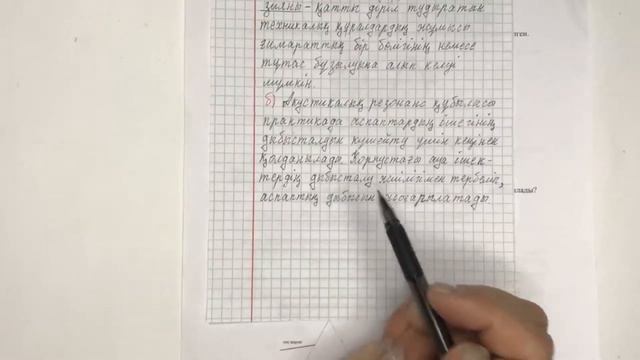 зияны - қатты дүріл тудыратын
техникалық құралдардың жұмысы
ғимараттың бір бөлігінің немесе
тұтас бұзылуына алып келді
мүмкін.
б) Акустикалық резонанс құбылысы
практикада аспаптардың ішегінің
дыбысталуын күшейту үшін кеңінен
қолданылады. Корпустағы ауа ішек-
тердің дыбысталу жиілігімен тербеліп,
аспаптың дыбысын жоғарылатады
ген.
лады?